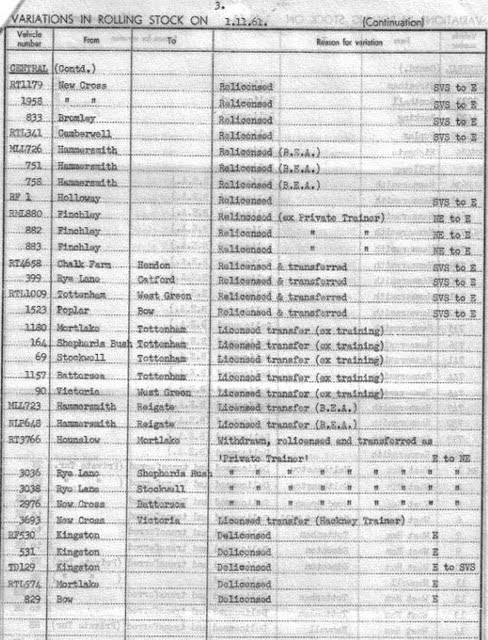 3.
VARIATIONS IN ROLLING STOCK ON 1.11.61. (Continuation)
Vehicle number From To Reason for variation
CENTRAL (Contd.)
RT1179 New Cross Relicensed SVS to E
1958 " " Relicensed SVS to E
833 Bromley Relicensed SVS to E
RTL341 Camberwell Relicensed SVS to E
MLL726 Hammersmith Relicensed (B.E.A.)
751 Hammersmith Relicensed (B.E.A.)
758 Hammersmith Relicensed (B.E.A.)
RF 1 Holloway Relicensed SVS to E
RML880 Finchley Relincosed (ex Private Trainer) NE to E
882 Finchley Relicensed " " NE to E
883 Finchley Relicensed " " NE to E
RT4658 Chalk Farm Hendon Relicensed & transferred SVS to E
399 Rye Lane Catford Relicensed & transferred SVS to E
RTL1009 Tottenham West Green Relicensed & transferred SVS to E
1523 Poplar Bow Relicensed & transferred SVS to E
1180 Mortlake Tottenham Licensed transfer (ex training)
164 Shepherds Bush Tottenham Licensed transfer (ex training)
69 Stockwell Tottenham Licensed transfer (ex training)
1157 Battersea Tottenham Licensed transfer (ex training)
90 Victoria West Green Licensed transfer (ex training)
MLL723 Hammersmith Reigate Licensed transfer (B.E.A.)
NLP648 Hammersmith Reigate Licensed transfer (B.E.A.)
RT3766 Hounslow Mortlake Withdrawn, relicensed and transferred as
'Private Trainer' E to NE
3036 Rye Lane Shepherds Bush " " " " " " "
3038 Rye Lane Stockwell " " " " " " "
2976 New Cross Battersea " " " " " " "
3693 New Cross Victoria Licensed transfer (Hackney Trainer)
RF530 Kingston Delicensed E
531 Kingston Delicensed E
TD129 Kingston Delicensed E to SVS
RTL574 Mortlake Delicensed E
829 Bow Delicensed E